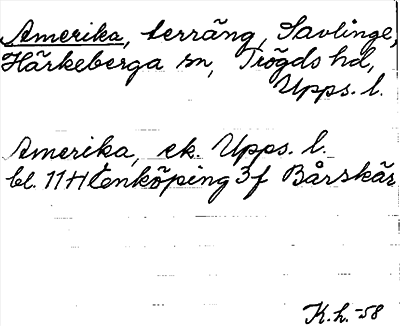 Amerika, terräng, Savlinge,
Härkeberga sn, Trögds hd,
Upps. l.
Amerika, ek. Upps. l.
bl. 11H Enköping 3f Bårskär
K.h. -58